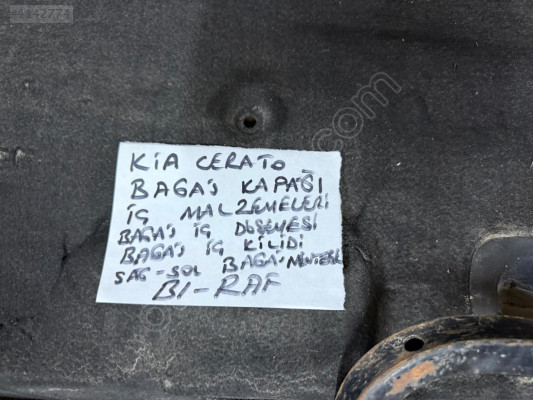 KIA CERATO
BAGAJ KAPAĞI
İÇ MALZEMELERİ
BAGAJ İÇ DÖŞEMESİ
BAGAJ İÇ KİLİDİ
SAĞ-SOL BAGAJ MENTEŞE
BI-RAF